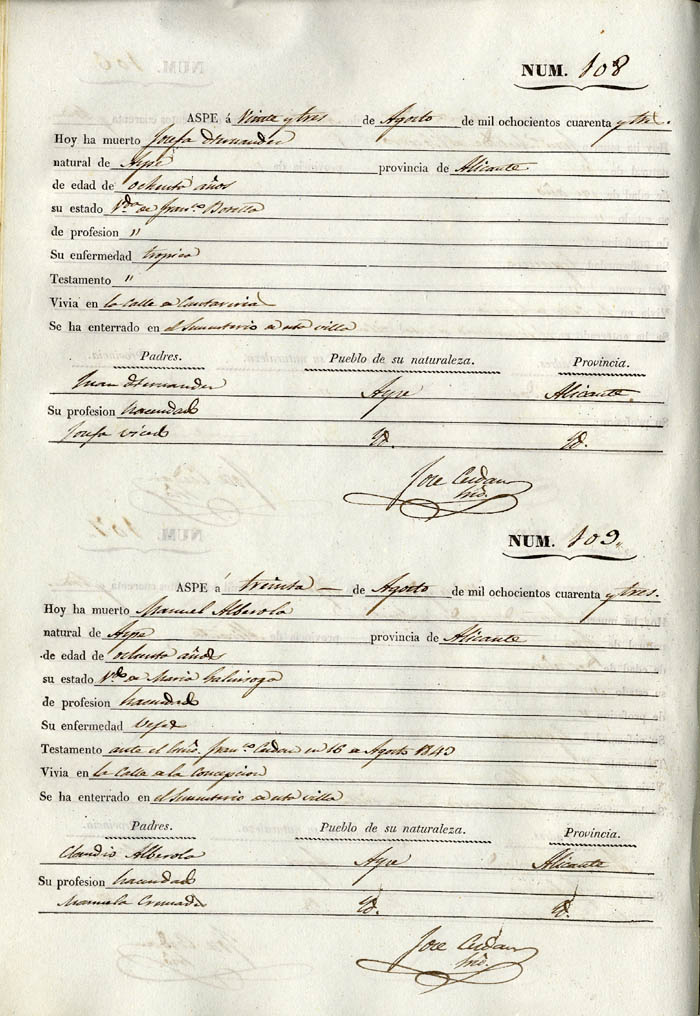 NUM. 108
ASPE á Veinte y tres de Agosto de mil ochocientos cuarenta y tres.
Hoy ha muerto Josefa Hernandez
natural de Aspe provincia de Alicante
de edad de ochenta años
su estado Vda. de Franco. Botella
de profesion "
Su enfermedad
Testamento "
Vivia en la Calle de Cantareria
Se ha enterrado en el Sementerio de esta villa
Padres. Pueblo de su naturaleza. Provincia.
Juan Hernandez Aspe Alicante.
Su profesion hacendado
Josefa Id. Id.
Jose Cerdan
NUM. 109.
ASPE á treinta — de Agosto de mil ochocientos cuarenta y tres.
Hoy ha muerto Manuel Alberola
natural de Aspe provincia de Alicante
de edad de ochenta años
su estado Vdo. de Maria Galinsoga
de profesion hacendado
Su enfermedad
Testamento ante el Franco. Cerdan en 16 de Agosto 1843
Vivia en la Calle de la Concepcion
Se ha enterrado en el Sementerio de esta villa
Padres. Pueblo de su naturaleza. Provincia.
Claudio Alberola Aspe Alicante
Su profesion hacendado
Manuela Cremades Id. Id.
Jose Cerdan